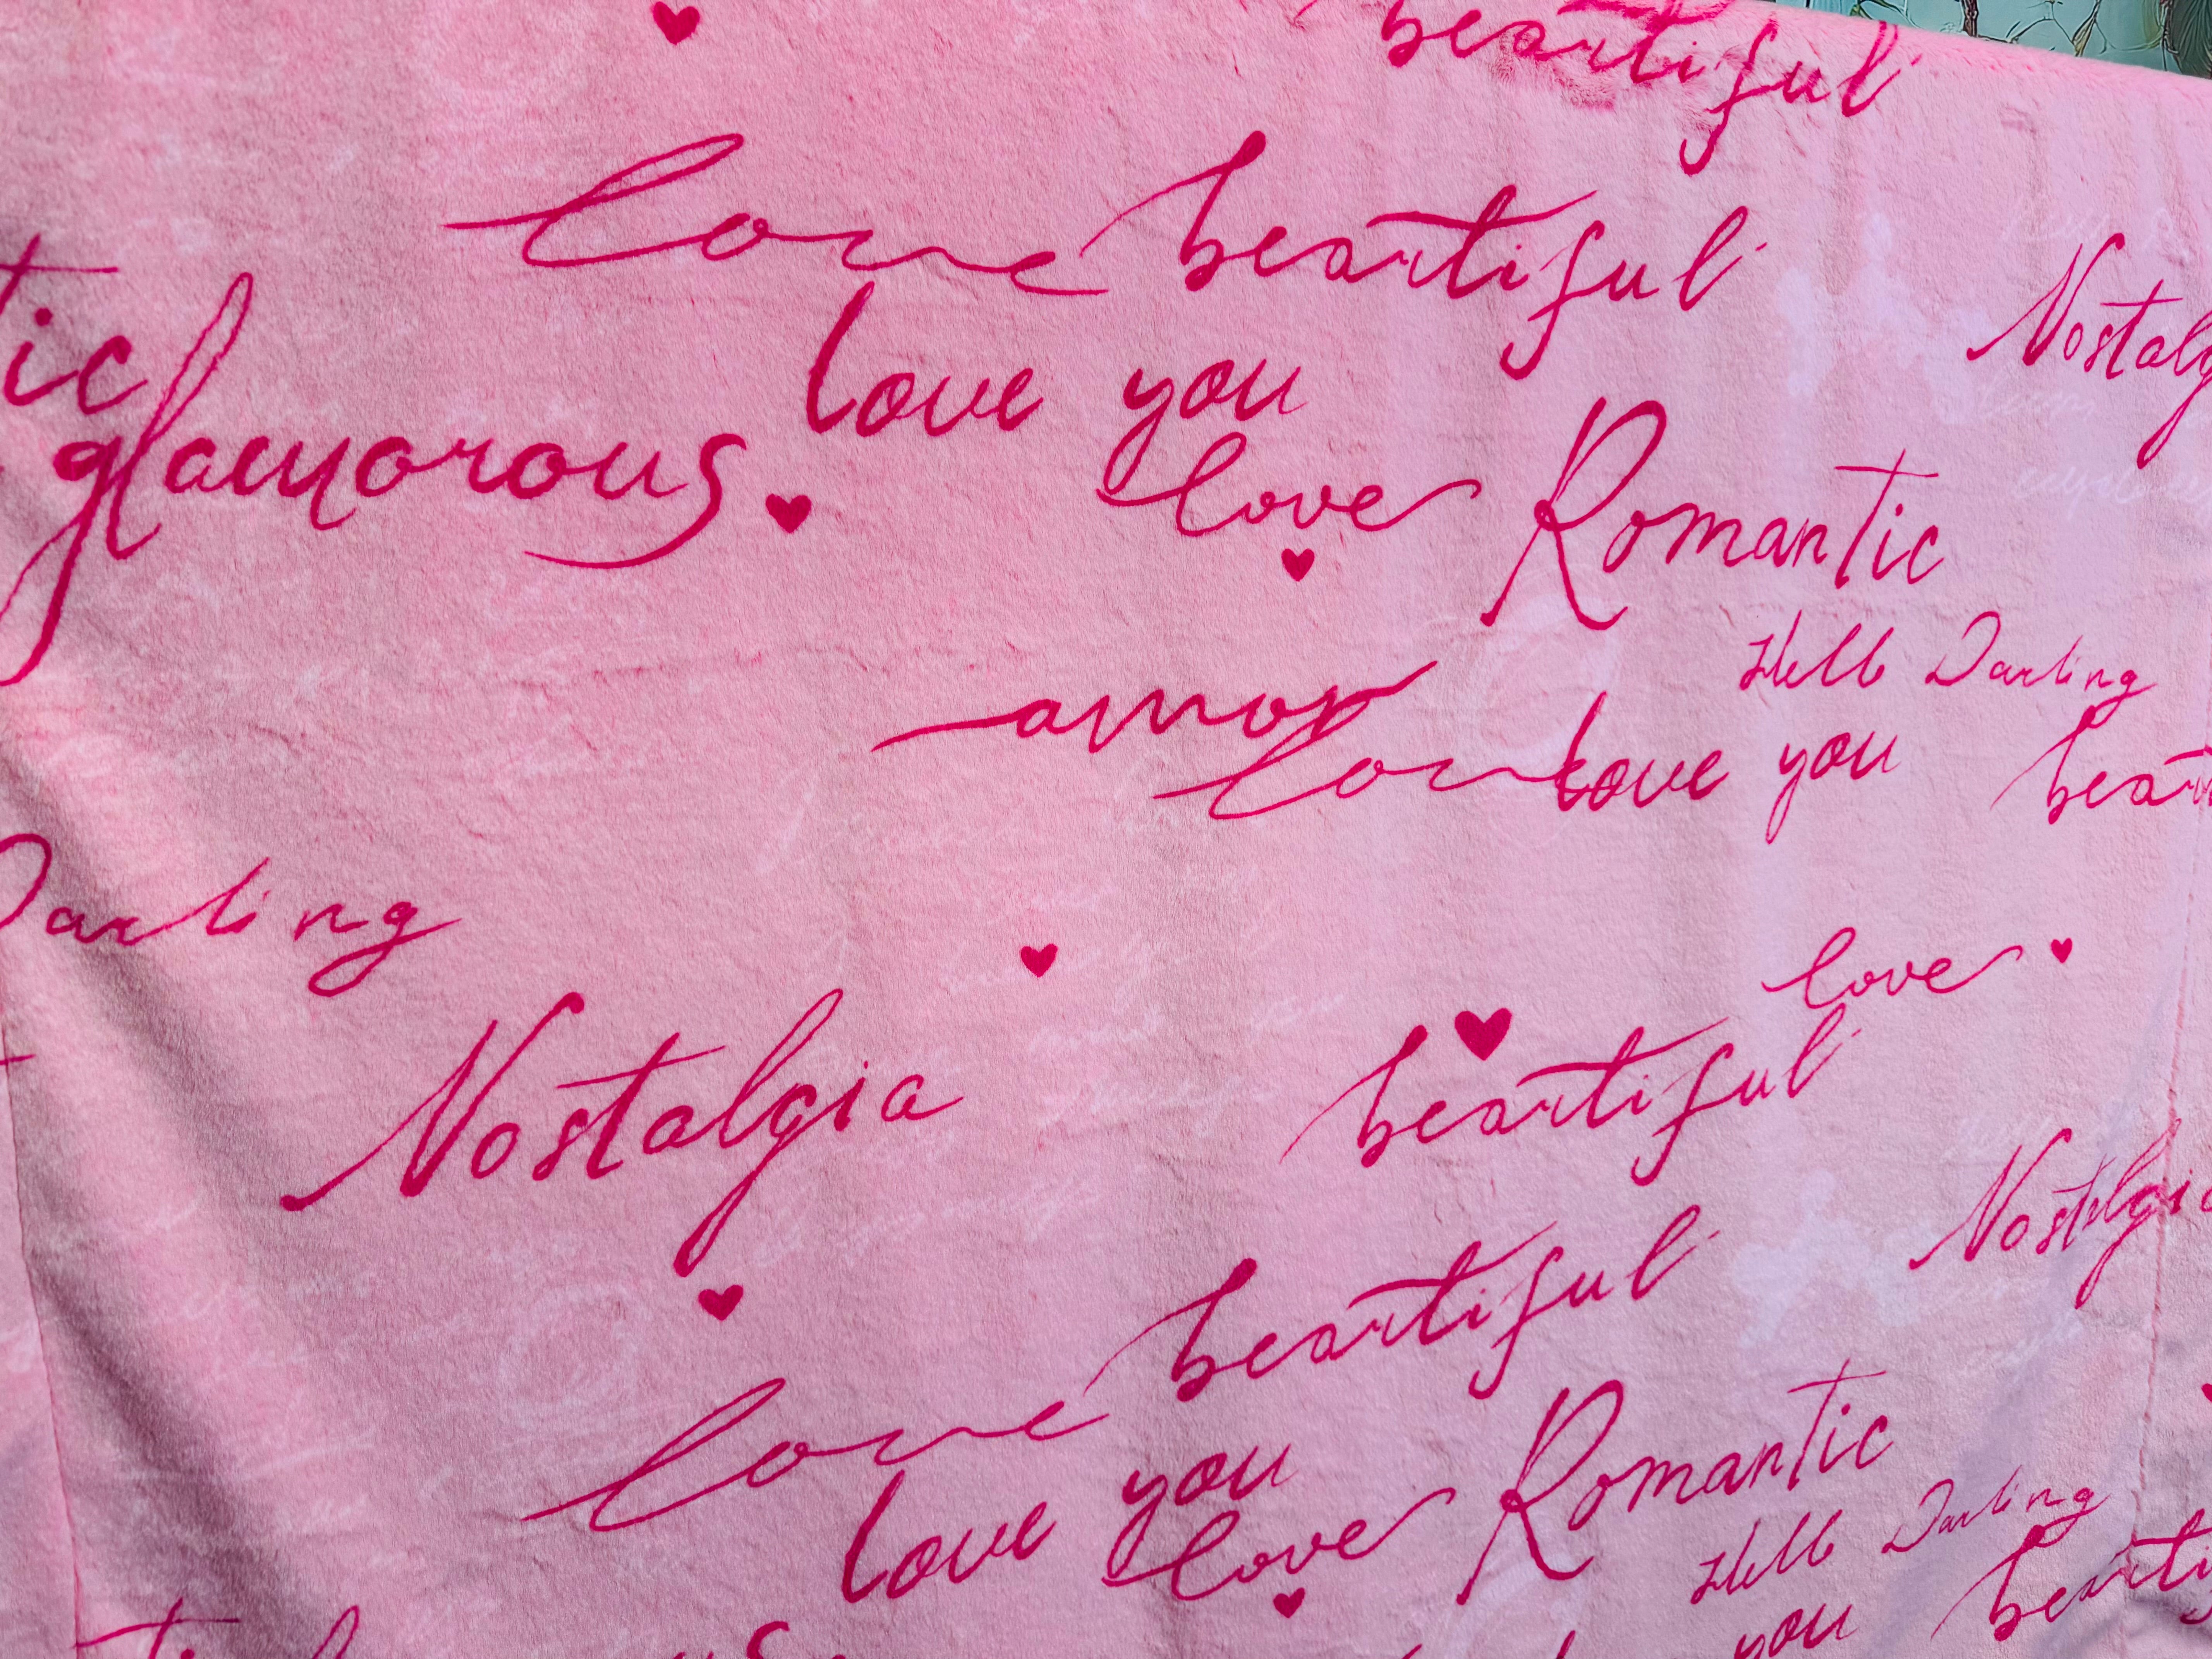 beautiful
love beautiful
Nostalg
tic
love you
glamorous
love Romantic
Hello Darling
amor
love love you beaut
Darling
love
Nostalgia
beautiful
Nostalgia
beautiful
love
love you
love Romantic
Hello Darling
you beauti